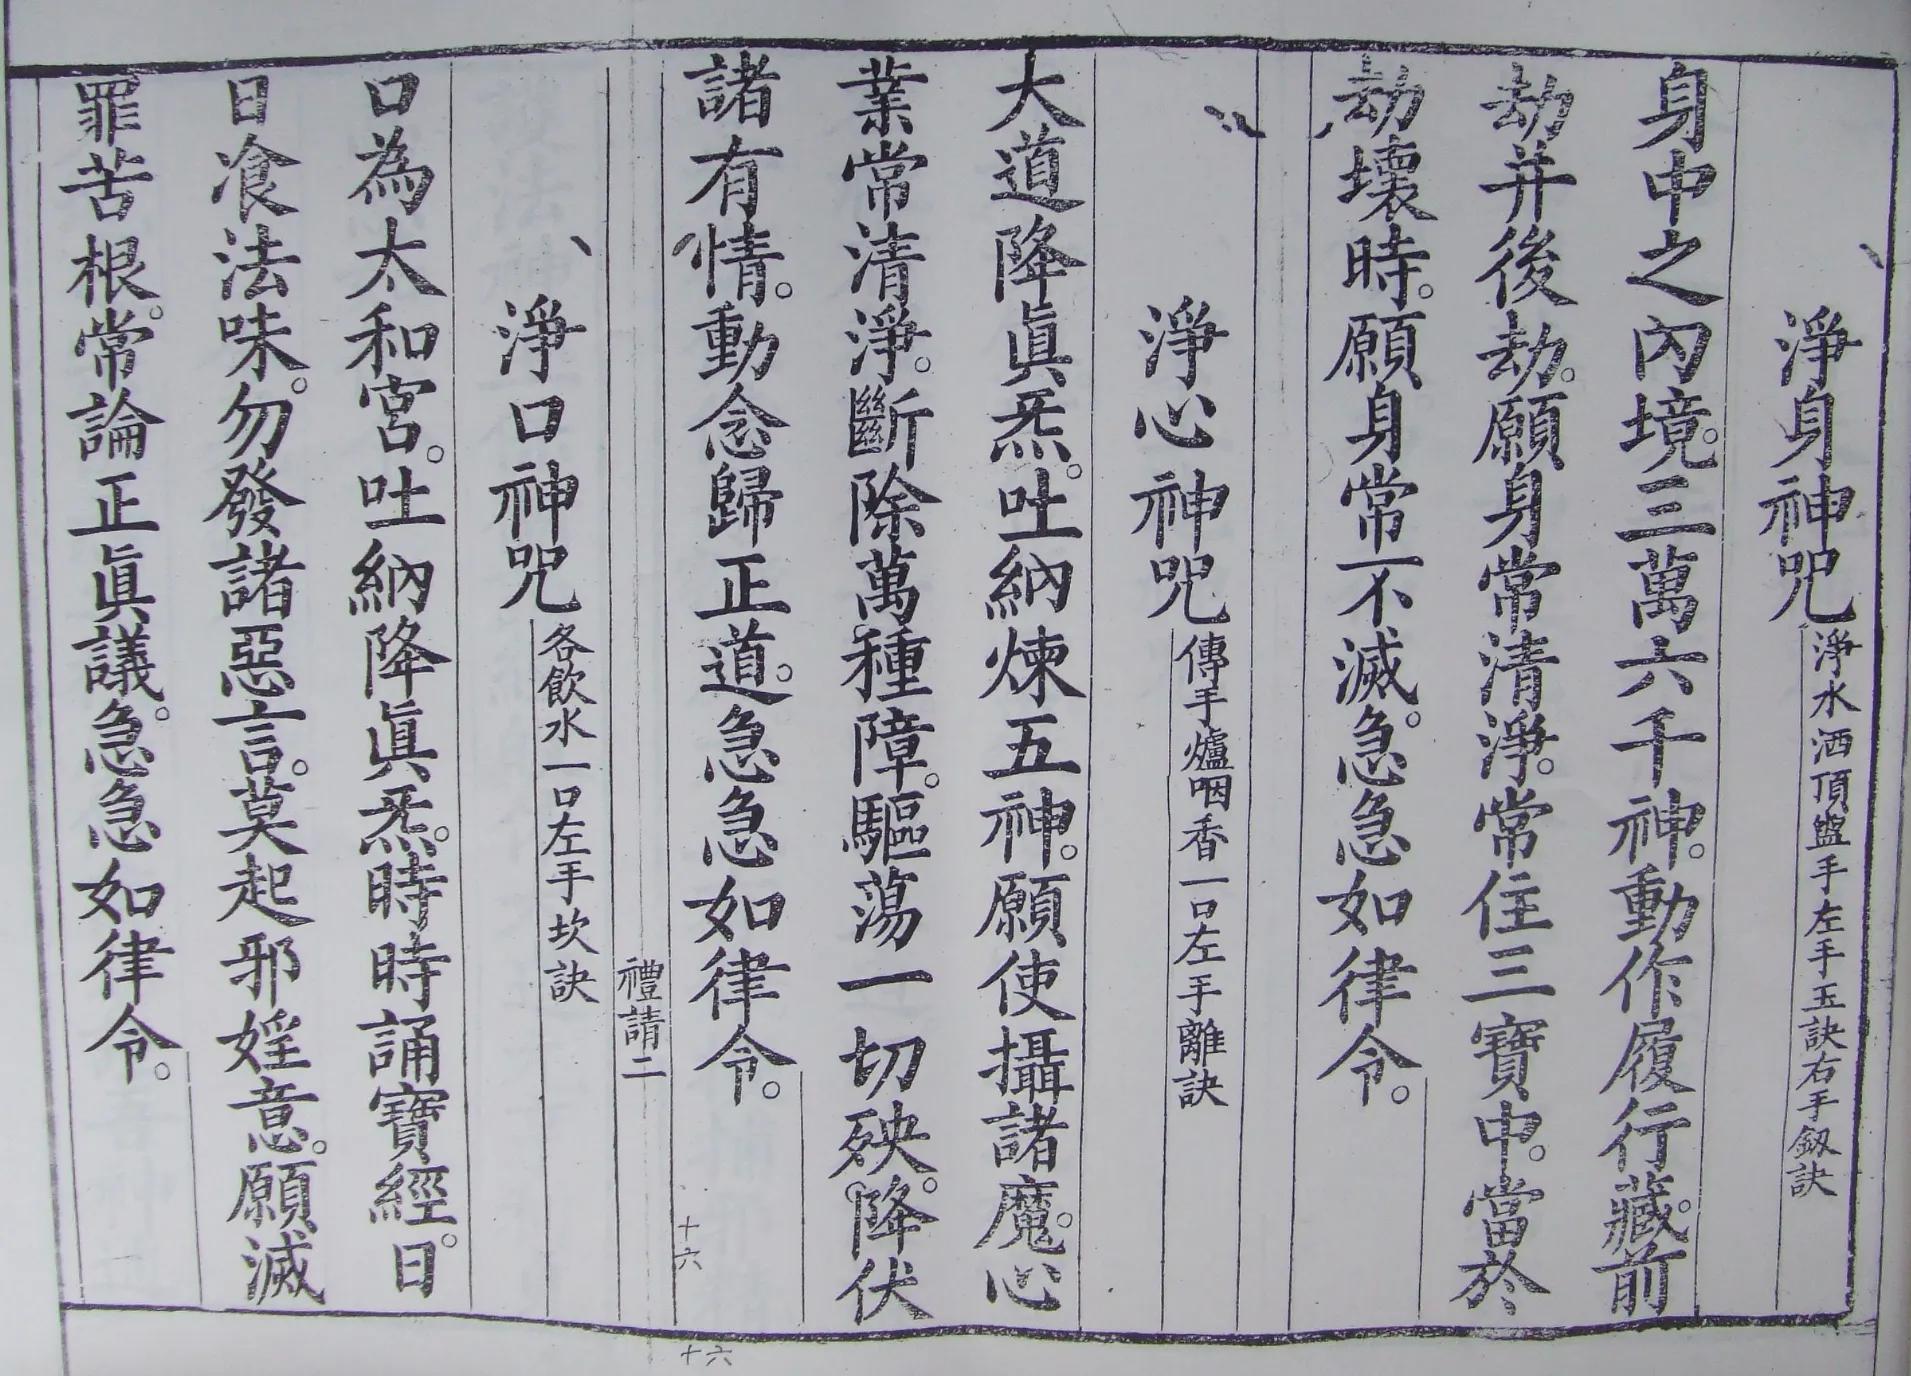 淨身神咒 淨水洒頂盥手左手玉訣右手釼訣
身中之內境。三萬六千神。動作履行藏。前
劫并後劫。願身常清淨。常住三寶中。當於
劫壞時。願身常不滅。急急如律令。
淨心神咒 傳手爐咽香一口左手離訣
大道降眞炁。吐納煉五神。願使攝諸魔。心
業常清淨。斷除萬種障。驅蕩一切殃。降伏
諸有情。動念歸正道。急急如律令。
禮請二
十六
十六
淨口神咒 各飲水一口左手坎訣
口為太和宮。吐納降眞炁。時時誦寶經。日
日飡法味。勿發諸惡言。莫起邪婬意。願滅
罪苦根。常論正眞議。急急如律令。